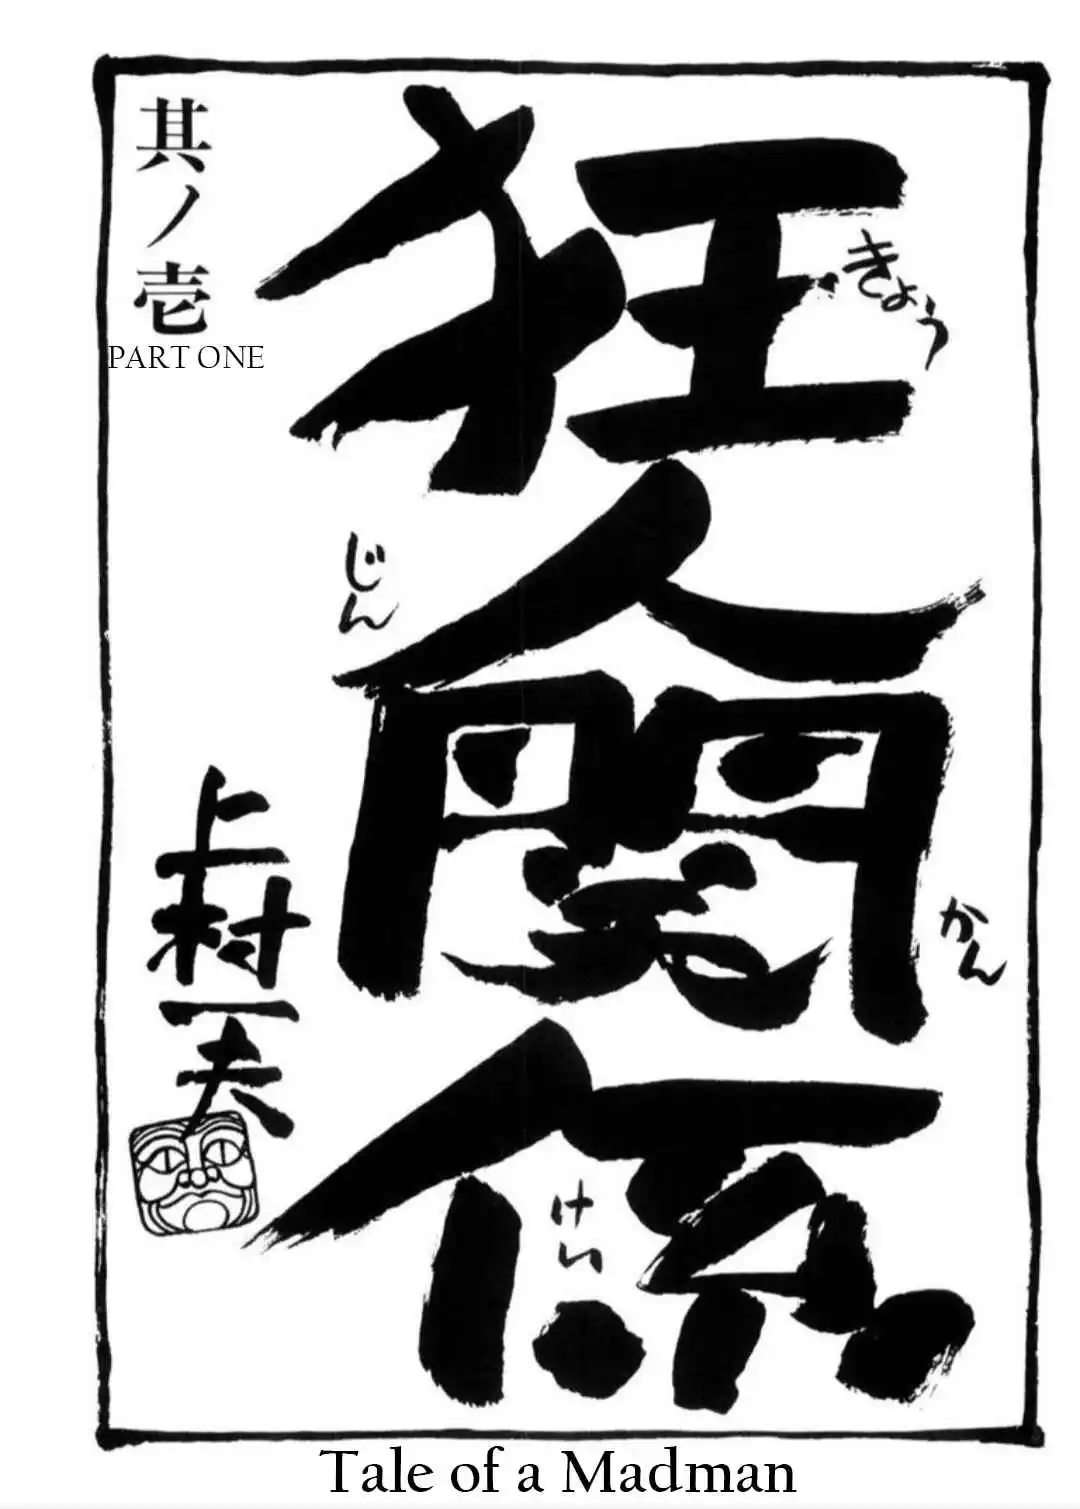 狂人関係
きょう
じん
かん
けい
其ノ壱
PART ONE
上村一夫
Tale of a Madman